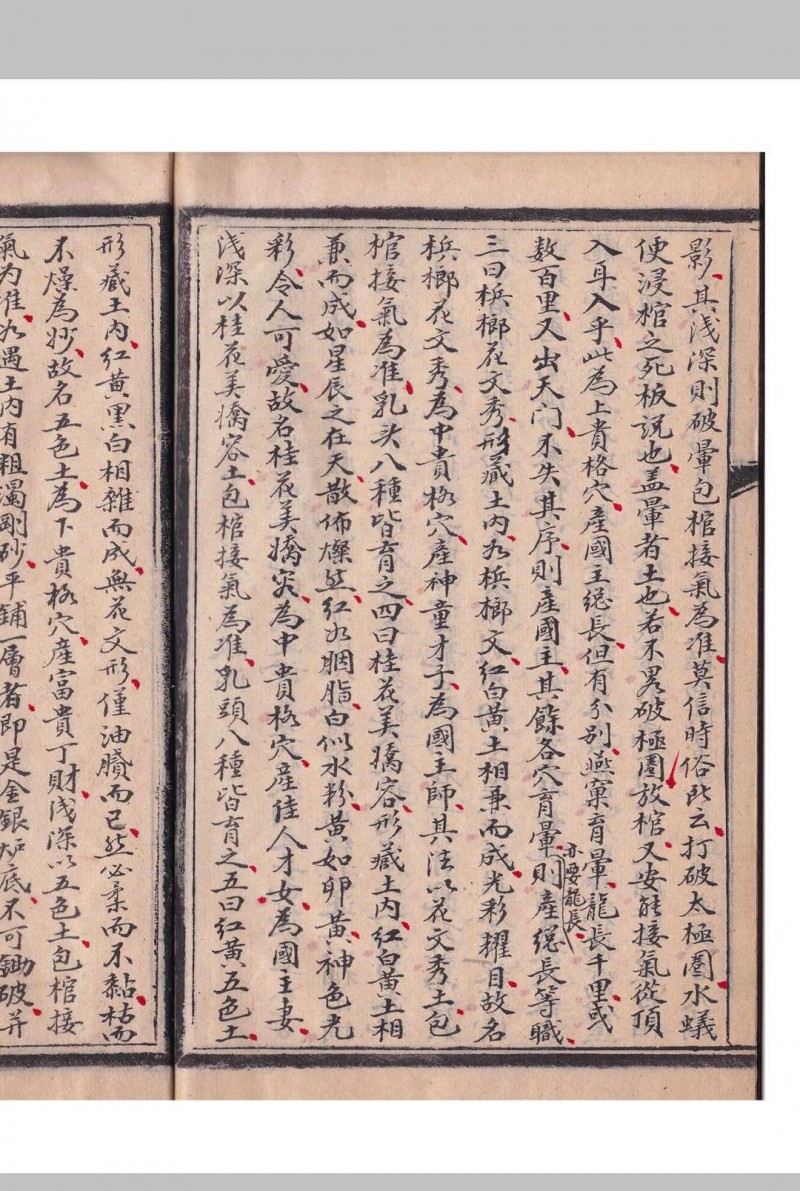 影其浅深則破暈包棺接氣為准莫信時俗以云打破太極圏水蟻
便浸棺之死板説也盖暈者土也若不畧破極圏放棺又安能接氣從頂
入耳入乎此為上貴格穴產國主総長但有分别燕窠育暈龍長千里或
数百里又出天门不失其序則產國主其餘各穴育暈則產総長等職
亦要龍長
三曰梹榔花文秀形藏土内如梹榔文红白黄土相兼而成光彩耀目故名
梹榔花文秀為中貴格穴產神童才子為國主師其法以花文秀土包
棺接氣為准乳头八種皆育之四曰桂花美嬌容形藏土内红白黄土相
兼而成如星辰之在天散佈燦然红如胭脂白似水粉黄如卵黄神色光
彩令人可愛故名桂花美嬌容為中貴格穴產佳人才女為國主妻
浅深以桂花美嬌容土包棺接氣為准乳頭八種皆育之五曰红黄五色土
形藏土内红黄黑白相雜而成無花文形僅油腻而已然必柔而不黏枯而
不燥為妙故名五色土為下貴格穴產富貴丁財浅深以五色土包棺接
氣為准如遇土内有粗濁剛砂平鋪一層者即是金銀炉底不可鋤破并